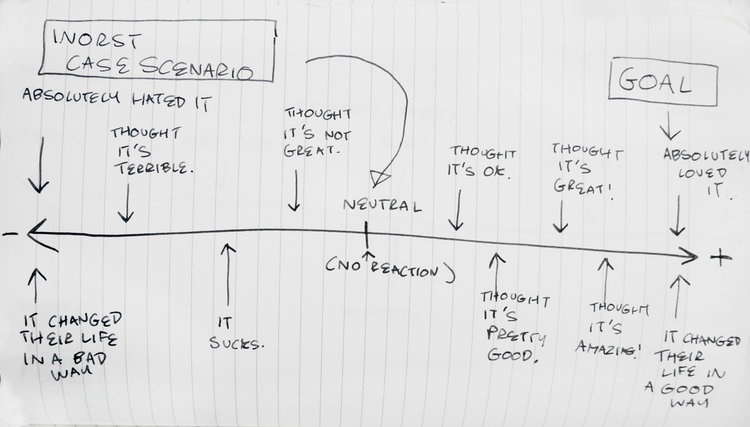 WORST
CASE SCENARIO
GOAL
ABSOLUTELY HATED IT
THOUGHT
IT'S
TERRIBLE.
THOUGHT
IT'S NOT
GREAT.
NEUTRAL
THOUGHT
IT'S OK.
THOUGHT
IT'S
GREAT!
ABSOLUTELY
LOVED
IT.
-
+
(NO REACTION)
IT CHANGED
THEIR LIFE
IN A BAD
WAY
IT
SUCKS.
THOUGHT
IT'S
PRETTY
GOOD.
THOUGHT
IT'S
AMAZING!
IT CHANGED
THEIR
LIFE IN
A GOOD
WAY